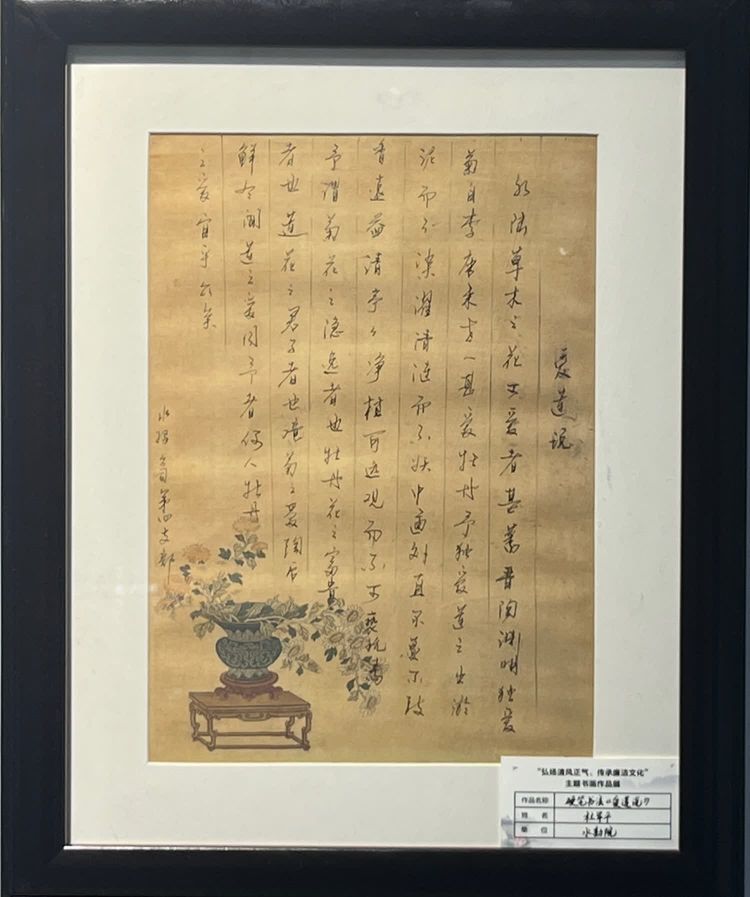 爱莲说
水陆草木之花可爱者甚蕃晋陶渊明独爱
菊自李唐来世人甚爱牡丹予独爱莲之出淤
泥而不染濯清涟而不妖中通外直不蔓不枝
香远益清亭亭净植可远观而不可亵玩焉
予谓菊花之隐逸者也牡丹花之富贵
者也莲花之君子者也噫菊之爱陶后
鲜有闻莲之爱同予者何人牡丹
之爱宜乎众矣
第四支部
“弘扬清风正气、传承廉洁文化”
主题书画作品展
作品名称 硬笔书法《爱莲说》
姓名 杜军平
单位 水勘院